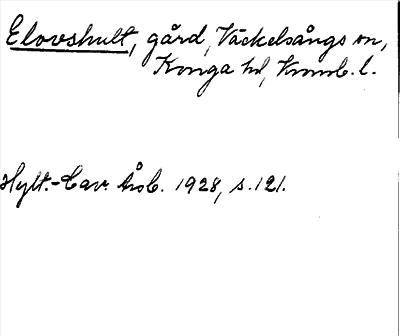 Elovshult, gård, Väckelsångs sn,
Konga hd, Kronob. l.
Hylt.-Cav. Årsb. 1928, s. 121.